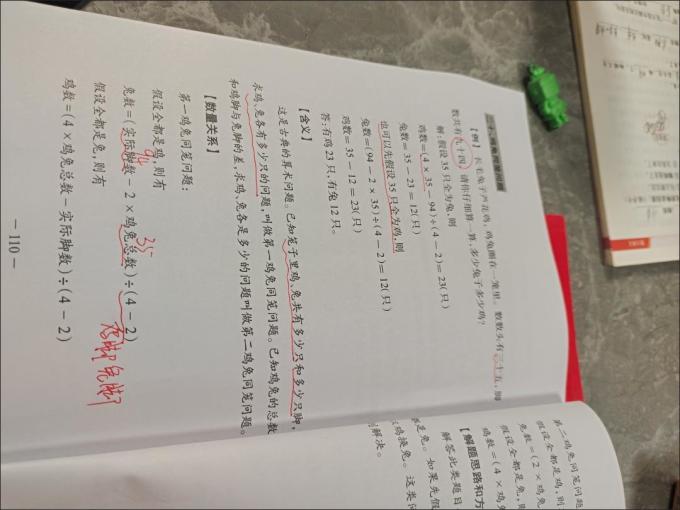 【例】 长毛兔子芦花鸡，鸡兔圈在一笼里。数数头有三十五，脚
数共有九十四。请你仔细算一算，多少兔子多少鸡？
解：假设35只全为兔，则
鸡数=(4×35-94)÷(4-2)=23(只)
兔数=35-23=12(只)
也可以先假设35只全为鸡，则
兔数=(94-2×35)÷(4-2)=12(只)
鸡数=35-12=23(只)
答：有鸡23只，有兔12只。
【含义】
这是古典的算术问题。已知笼子里鸡、兔共有多少只和多少只脚，
求鸡、兔各有多少只的问题，叫做第一鸡兔同笼问题。已知鸡兔的总数
和鸡脚与兔脚的差，求鸡、兔各是多少的问题叫做第二鸡兔同笼问题。
【数量关系】
第一鸡兔同笼问题：
假设全都是鸡，则有
94 35
兔数=(实际脚数-2×鸡兔总数)÷(4-2)
兔脚
假设全都是兔，则有
鸡数=(4×鸡兔总数-实际脚数)÷(4-2)
— 110 —
第二鸡兔同笼问题
假设全都是鸡，则
兔数=(2×鸡兔
假设全都是兔，则
鸡数=(4×鸡
【解题思路和方
解答此类题目
是兔。如果先假
鸡换兔。这类问
解决。